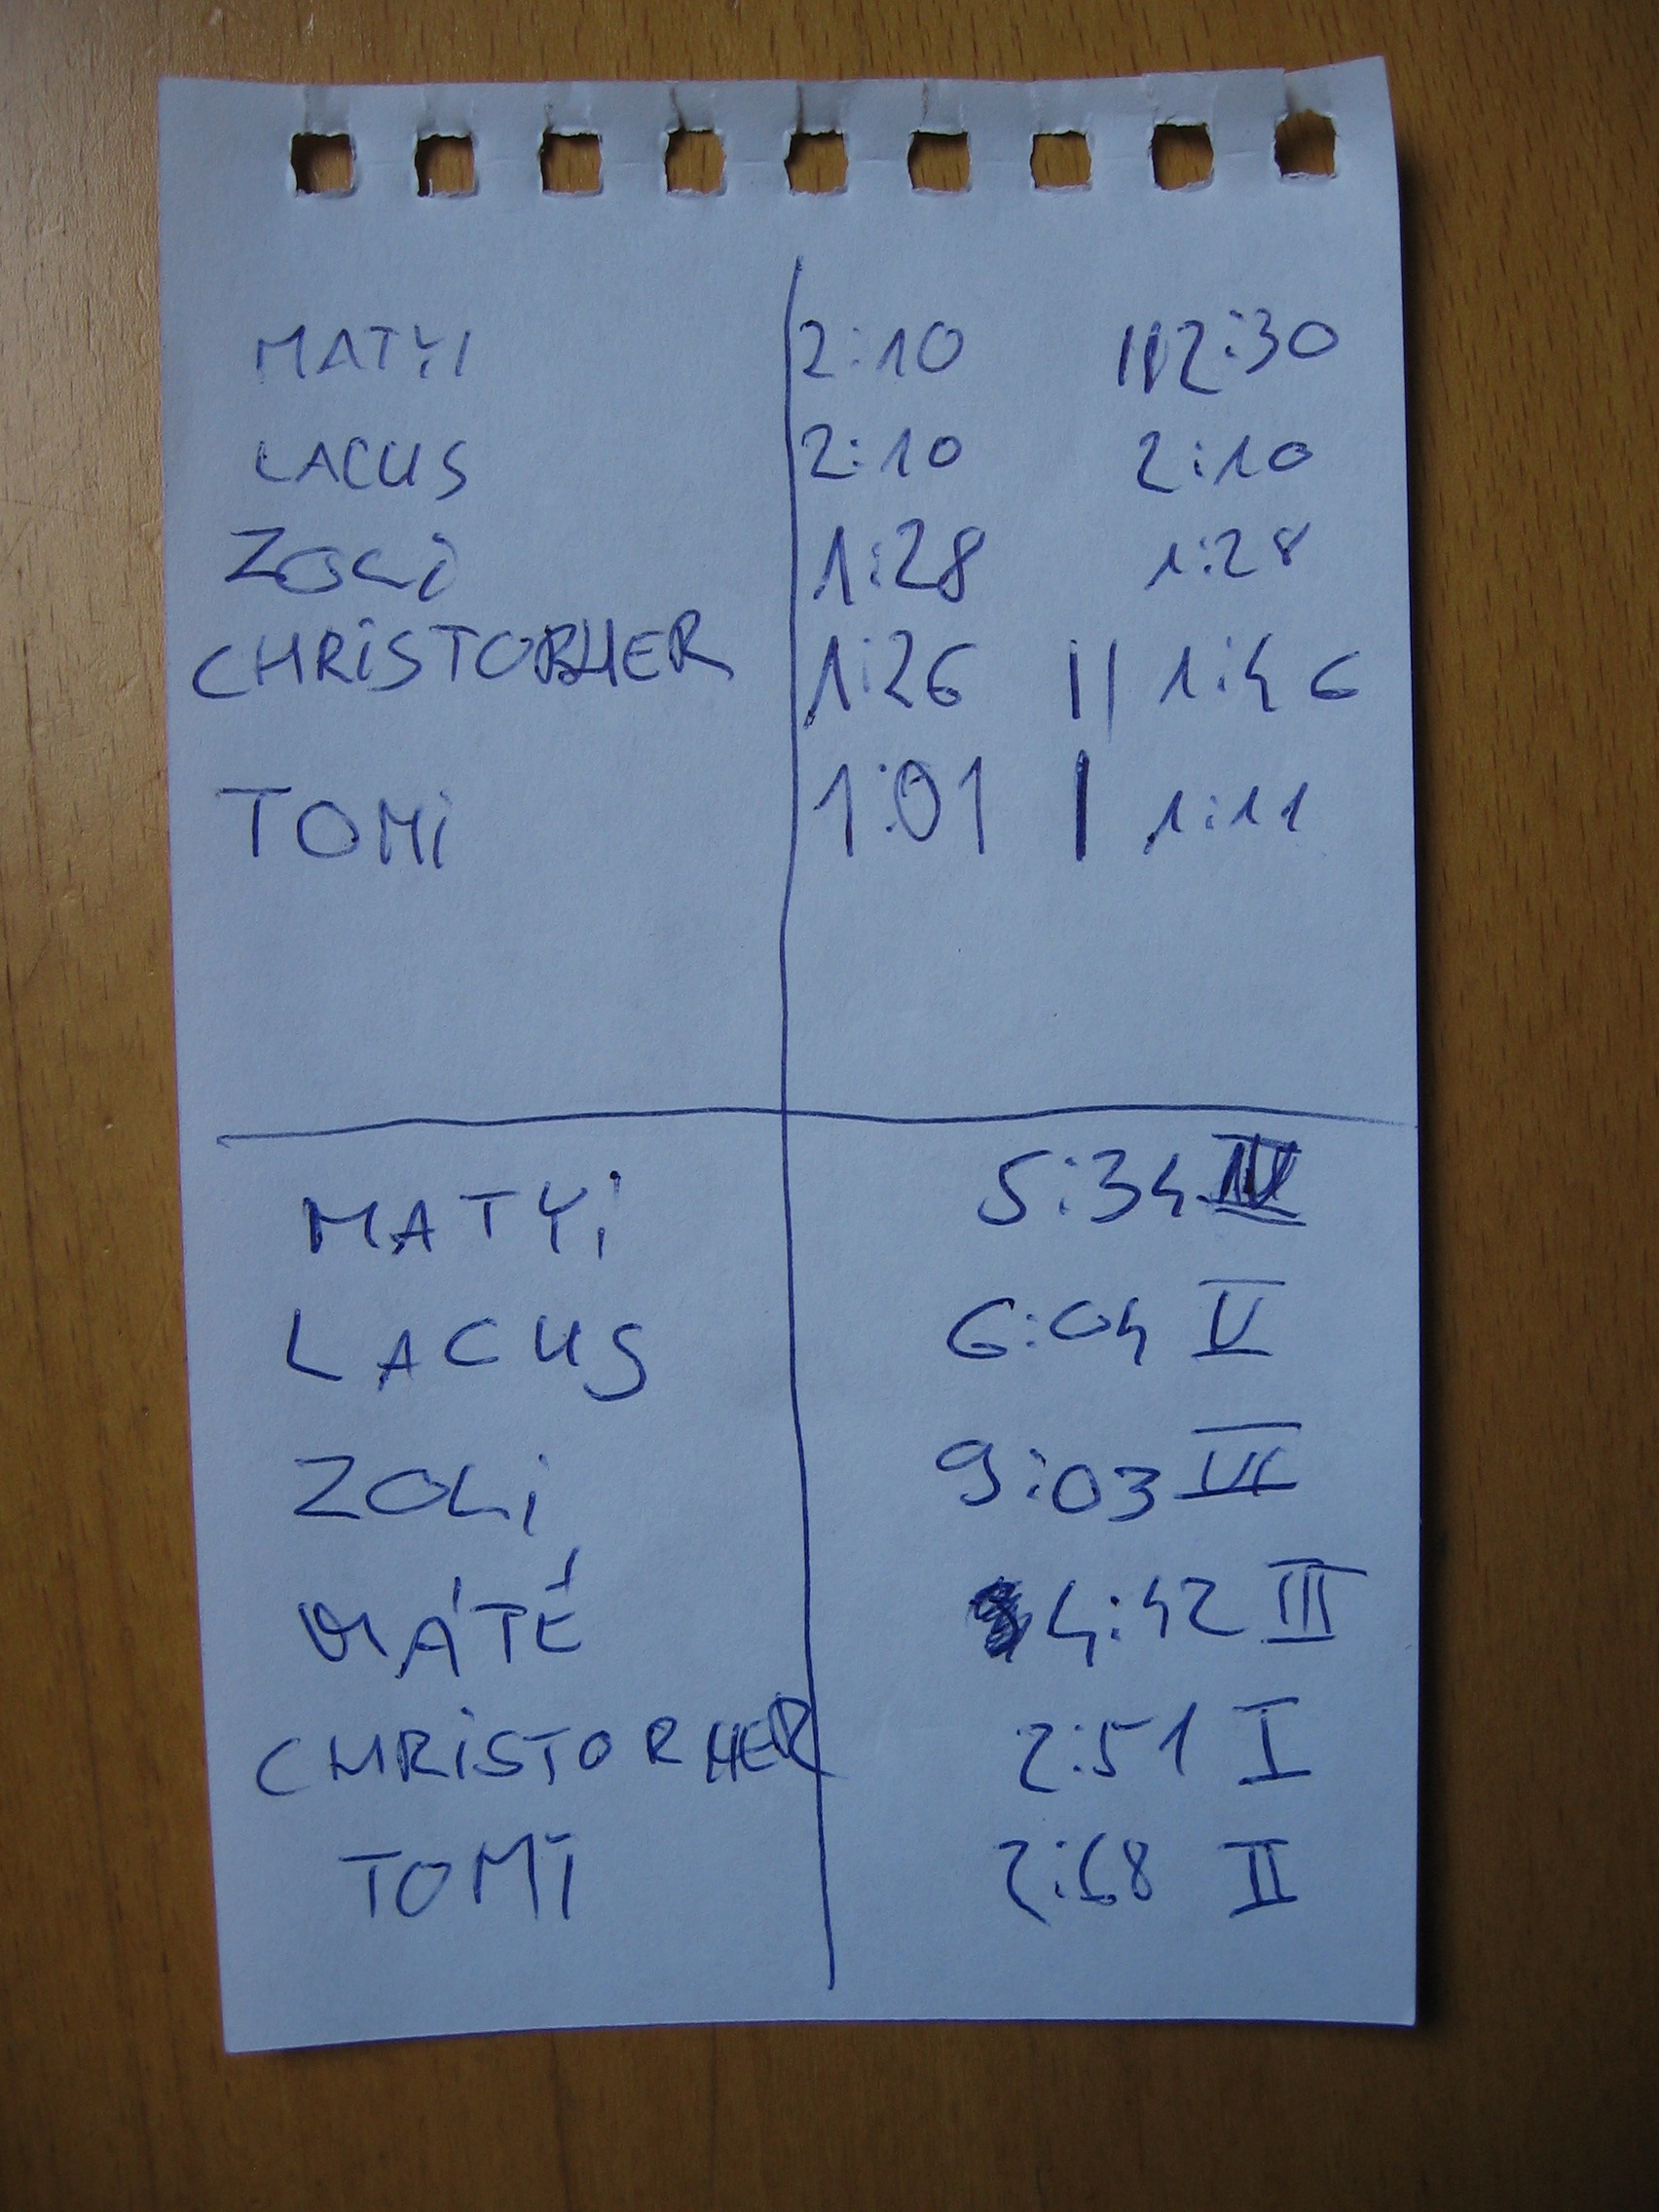 MATYI 2:10 || 2:30
LACUS 2:10 2:10
ZOLi 1:28 1:28
CHRiSTOPHER 1:26 || 1:46
TOMi 1:01 | 1:11
MATYi 5:34 IV
LACUS 6:04 V
ZOLi 9:03 VI
MÁTÉ 4:42 III
CHRiSTOPHER 2:51 I
TOMi II